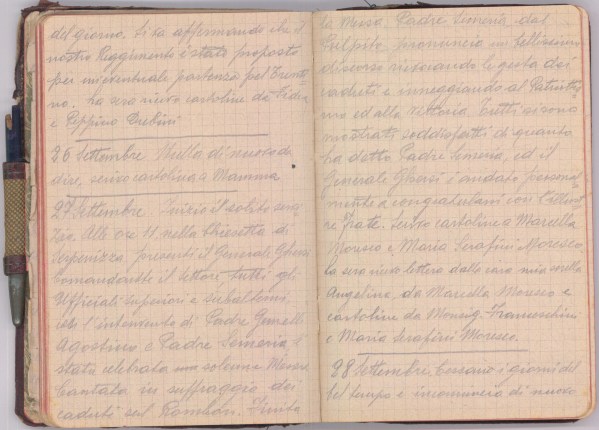 del giorno. Si va affermando che il
nostro Reggimento è stato proposto
per un'eventuale partenza pel Trenti
no. La sera ricevo cartoline da
e Peppino
26 Settembre. Nulla di nuovo da
dire, scrivo cartolina a Mamma
27 Settembre. Inizio il solito servi
zio. Alle ore 11 nella Chiesetta di
Serpenizza, presenti il Generale
Comandante il settore, tutti gli
Ufficiali Superiori e subalterni,
con l'intervento di Padre Gemelli
Agostino e Padre Semeria è
stata celebrata una solenne Messa
Cantata in suffragio dei
caduti sul Rombon. Finita
la Messa, Padre Semeria dal
Pulpito, pronuncia un bellissimo
discorso rievocando le gesta dei
caduti e inneggiando al Patriotis
mo ed alla vittoria. Tutti si sono
mostrati soddisfatti di quanto
ha detto Padre Semeria, ed il
Generale è andato personal
mente a congratularsi con l'illust
re Frate. Scrivo cartoline a Marcella
Moresco e Maria Serafini Moresco.
La sera ricevo lettera dalla cara mia sorella
Angelina, da Marcella Moresco e
cartoline da Monsig. Franceschini
e Maria Serafini Moresco.
28 Settembre. Cessano i giorni del
bel tempo e incomincia di nuovo